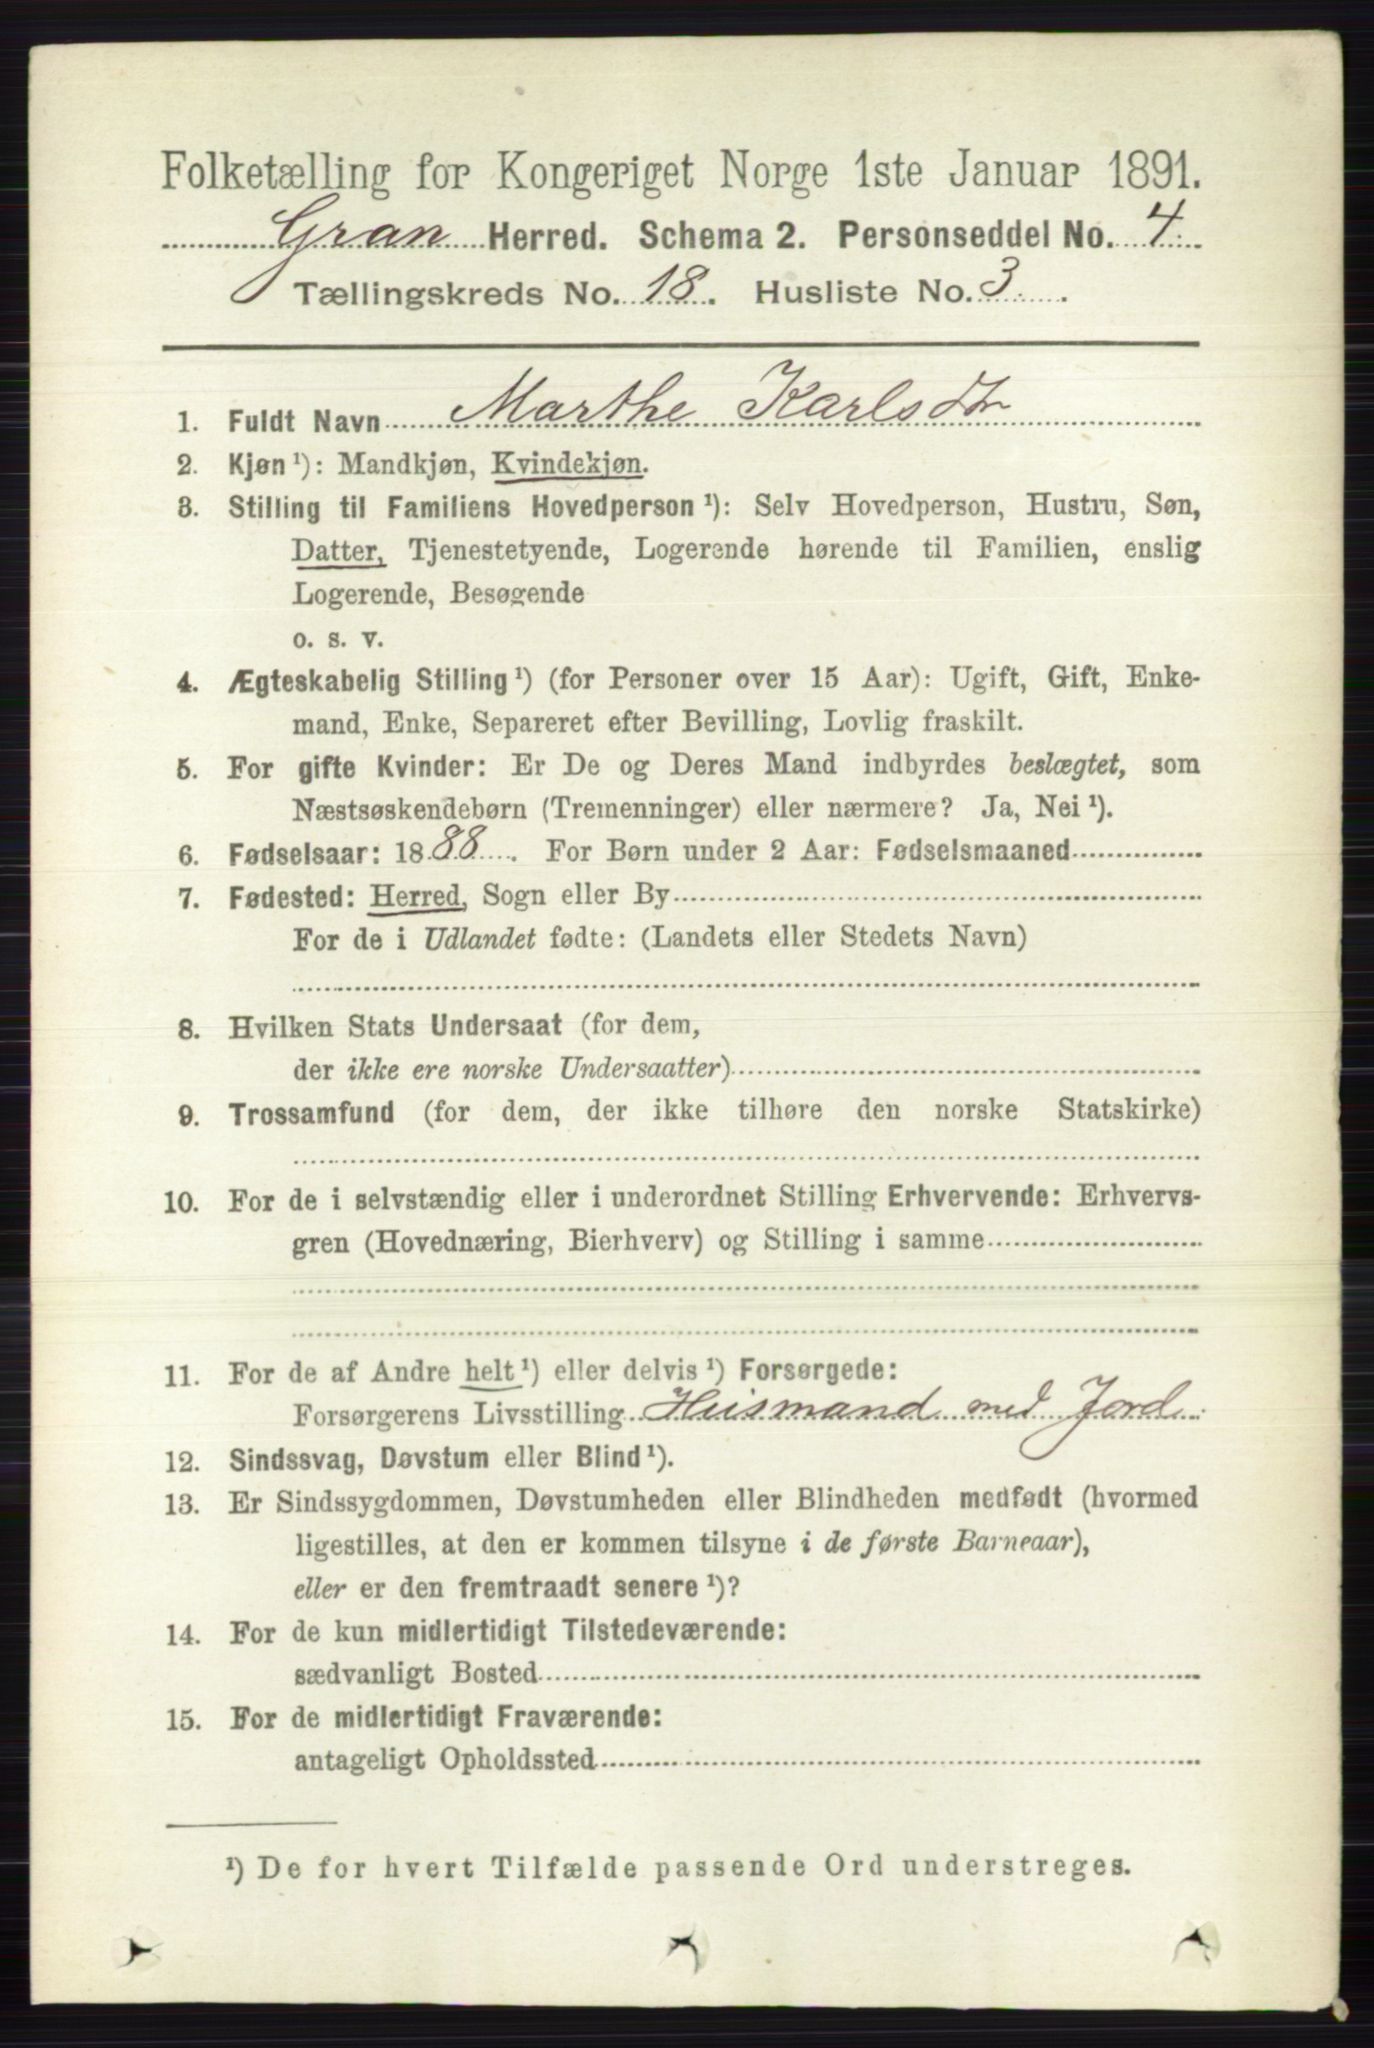 Folketælling for Kongeriget Norge 1ste Januar 1891.
Gran Herred. Schema 2. Personseddel No. 4.
Tællingskreds No. 18. Husliste No. 3.
1. Fuldt Navn Marthe Karlsdtr
2. Kjøn ¹): Mandkjøn, Kvindekjøn.
3. Stilling til Familiens Hovedperson ¹): Selv Hovedperson, Hustru, Søn,
Datter, Tjenestetyende, Logerende hørende til Familien, enslig
Logerende, Besøgende
o. s. v.
4. Ægteskabelig Stilling ¹) (for Personer over 15 Aar): Ugift, Gift, Enke-
mand, Enke, Separeret efter Bevilling, Lovlig fraskilt.
5. For gifte Kvinder: Er De og Deres Mand indbyrdes beslægtet, som
Næstsøskendebørn (Tremenninger) eller nærmere? Ja, Nei ¹).
6. Fødselsaar: 1888. For Børn under 2 Aar: Fødselsmaaned
7. Fødested: Herred, Sogn eller By
For de i Udlandet fødte: (Landets eller Stedets Navn)
8. Hvilken Stats Undersaat (for dem,
der ikke ere norske Undersaatter)
9. Trossamfund (for dem, der ikke tilhøre den norske Statskirke)
10. For de i selvstændig eller i underordnet Stilling Erhvervende: Erhvervs-
gren (Hovednæring, Bierhverv) og Stilling i samme
11. For de af Andre helt ¹) eller delvis ¹) Forsørgede:
Forsørgerens Livsstilling Husmand med Jord
12. Sindssvag, Døvstum eller Blind ¹).
13. Er Sindssygdommen, Døvstumheden eller Blindheden medfødt (hvormed
ligestilles, at den er kommen tilsyne i de første Barneaar),
eller er den fremtraadt senere ¹)?
14. For de kun midlertidigt Tilstedeværende:
sædvanligt Bosted
15. For de midlertidigt Fraværende:
antageligt Opholdssted
¹) De for hvert Tilfælde passende Ord understreges.